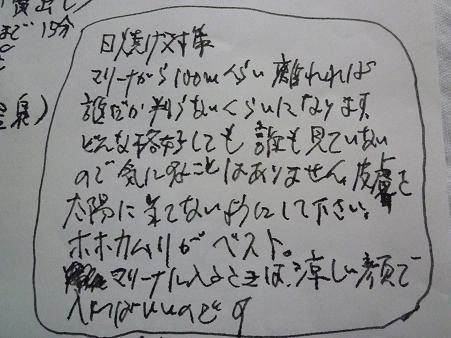 貸出し
まで15分
泉)
日焼け対策
マリーナから100mくらい離れれば
誰だか判らないくらいになります
どんな格好しても誰も見ていない
ので気にすることはありません。皮膚を
太陽に当てないようにして下さい。
ホホカムリがベスト。
マリーナに入るときは、涼しい顔で
入ればいいのです